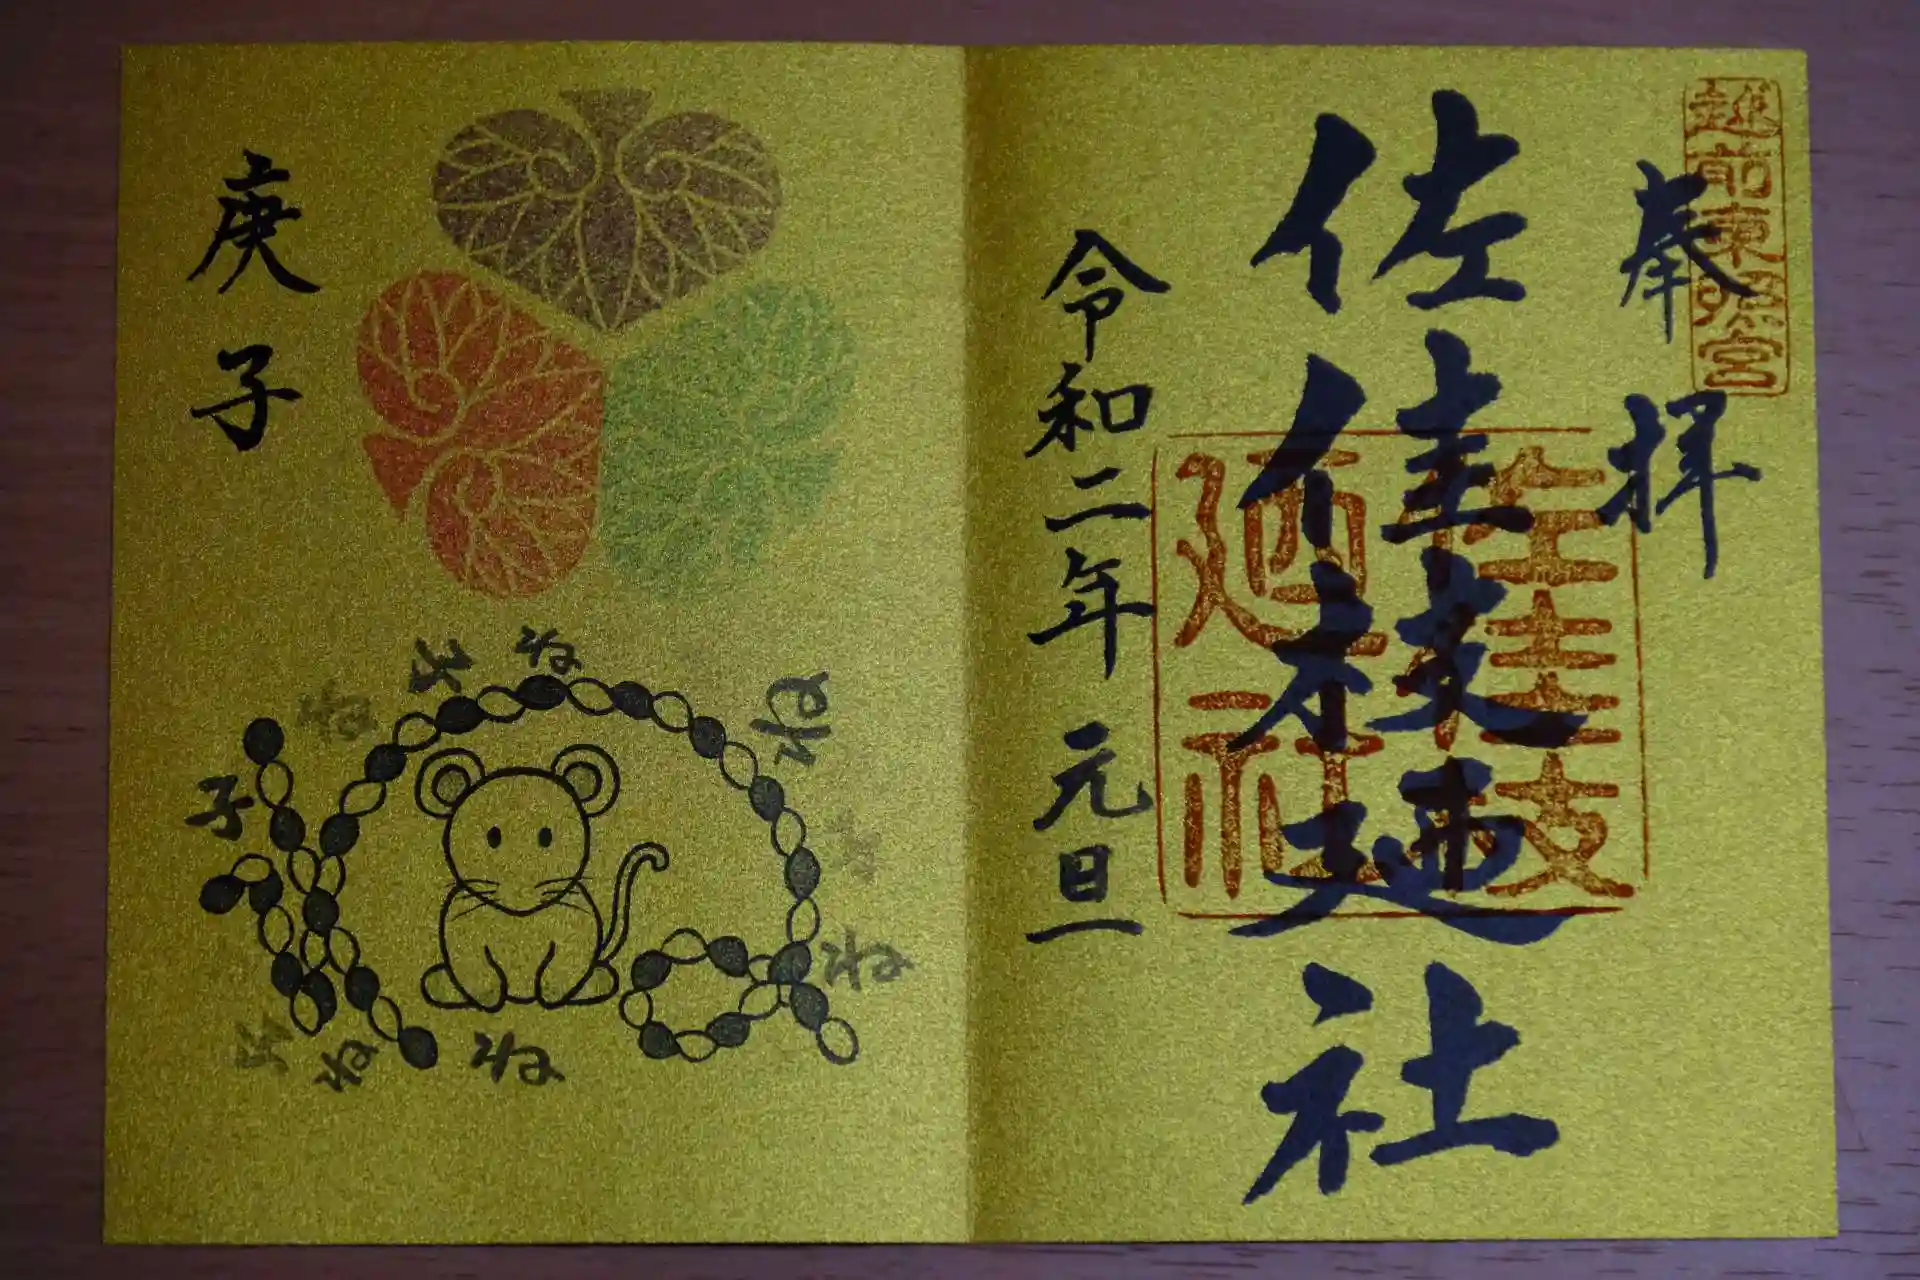 越前東照宮
奉拝
佐佳枝廼社
佐佳枝
廼社
令和二年元旦
庚子
ね
ね
ね
ね
子